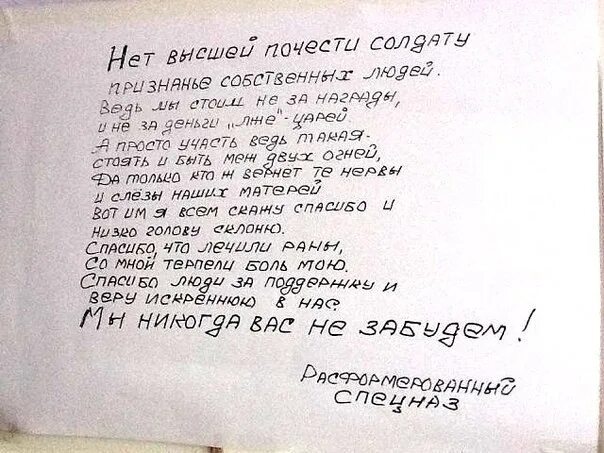 Нет высшей почести солдату
признанье собственных людей.
Ведь мы стоим не за награды,
и не за деньги „лже"-царей.
А просто участь ведь такая-
стоять и быть меж двух огней,
Да только кто ж вернет те нервы
и слёзы наших матерей
Вот им я всем скажу спасибо и
низко голову склоню.
Спасибо, что лечили раны,
Со мной терпели боль мою.
Спасибо люди за поддержку и
веру искреннюю в нас.
Мы никогда вас не забудем!
Расформерованный
спецназ